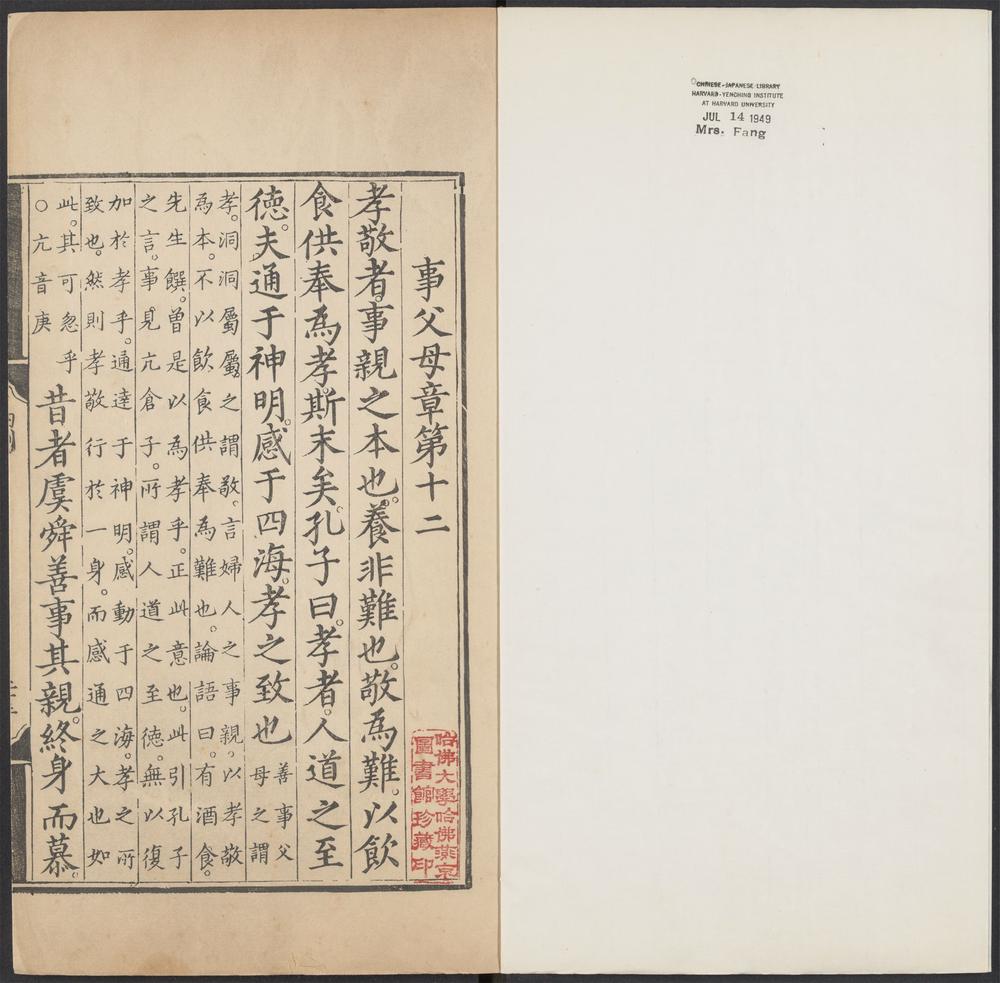 CHINESE-JAPANESE LIBRARY
HARVARD-YENCHING INSTITUTE
AT HARVARD UNIVERSITY
JUL 14 1949
Mrs. Fang
哈佛大學哈佛燕京
圖書館珍藏印
事父母章第十二
孝敬者。事親之本也。養非難也。敬爲難。以飲
食供奉爲孝。斯末矣。孔子曰。孝者。人道之至
德。夫通于神明。感于四海。孝之致也
善事父
母之謂
孝。洞洞屬屬之謂敬。言婦人之事親。以孝敬
爲本。不以飲食供奉爲難也。論語曰。有酒食。
先生饌。曾是以爲孝乎。正此意也。此引孔子
之言。事見亢倉子。所謂人道之至德。無以復
加於孝乎。通達于神明。感動于四海。孝之所
致也。然則孝敬行於一身。而感通之大也如
此。其可忽乎
○亢音庚
昔者虞舜善事其親。終身而慕。